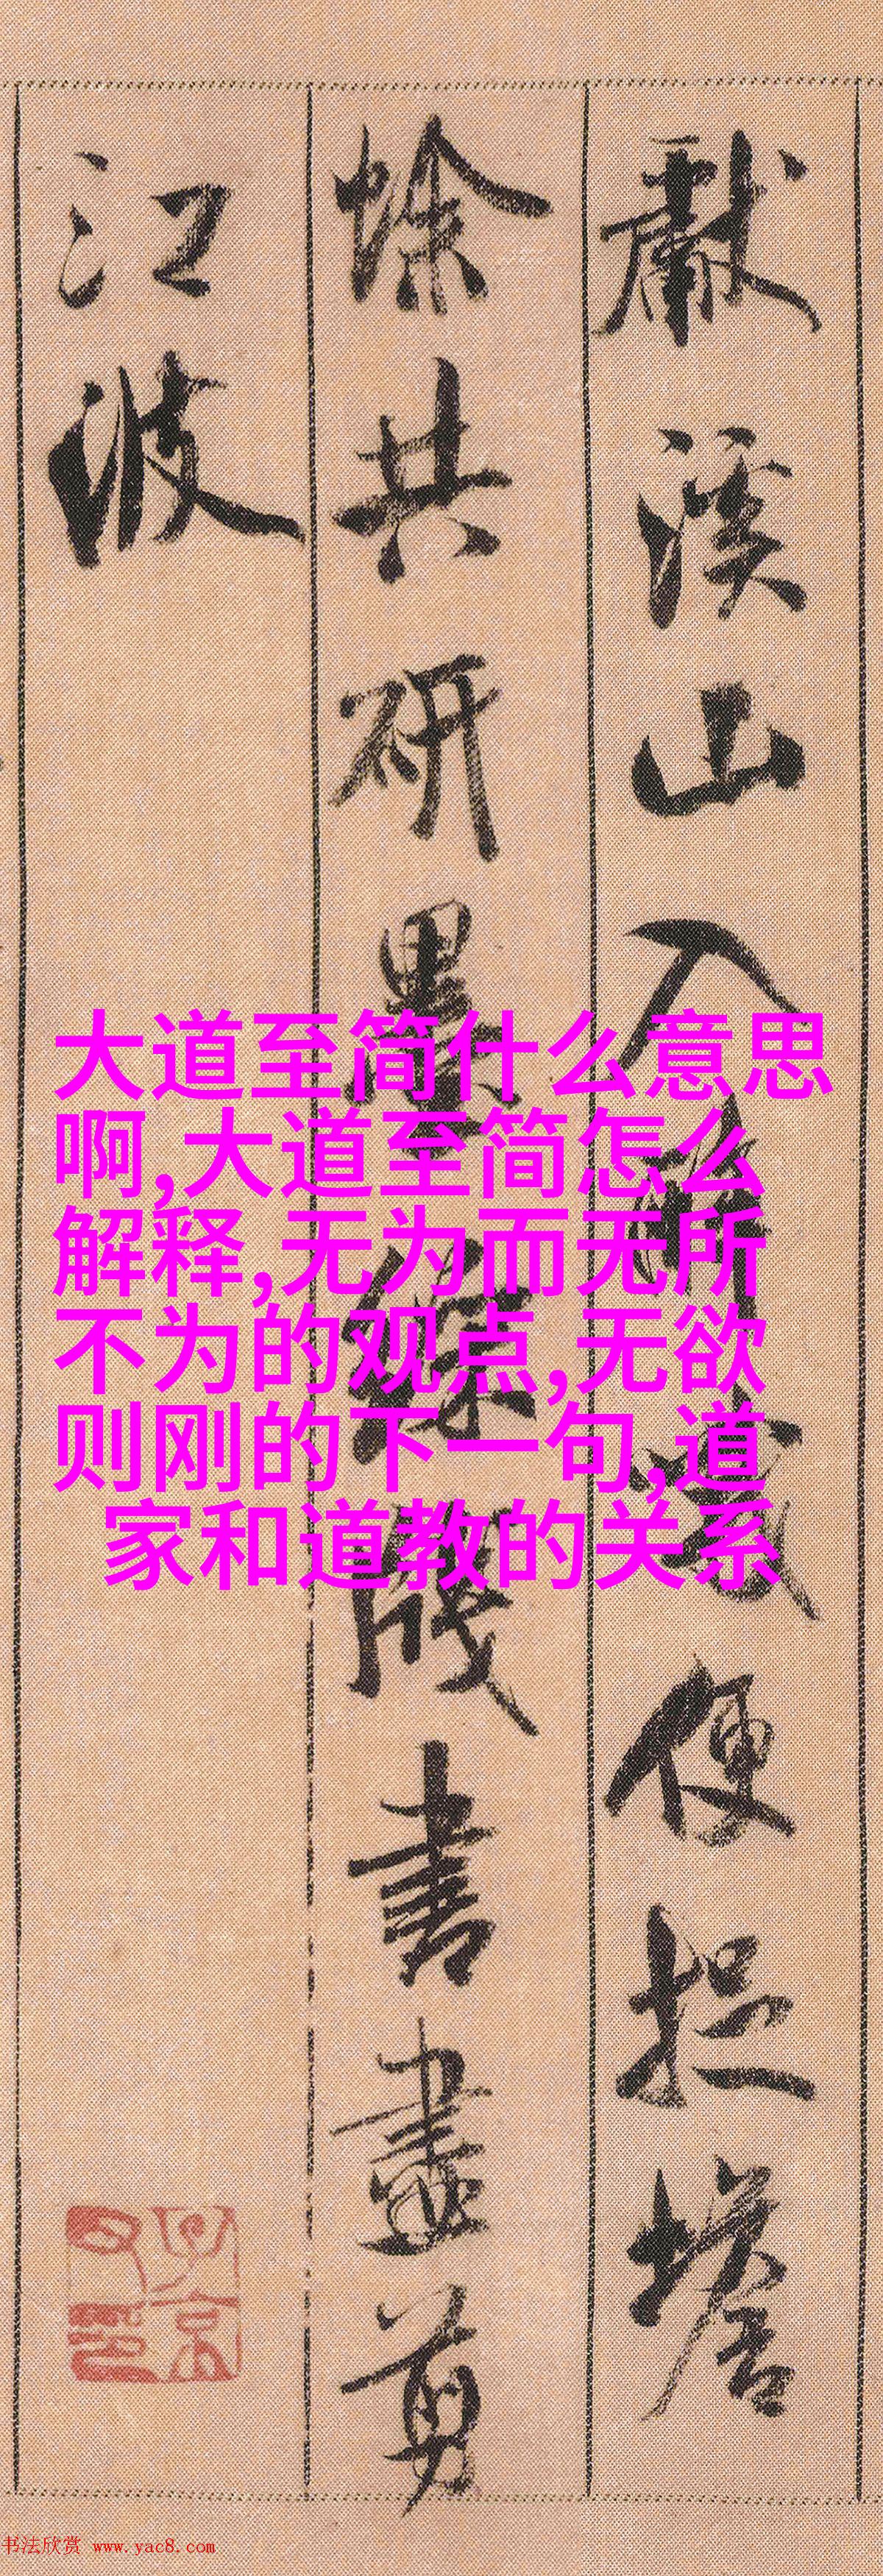 獻溪山入醉哦便捉蟾
蜍共研墨綵牋書盡剪
江波
大道至简什么意思
啊,大道至简怎么
解释,无为而无所
不为的观点,无欲
则刚的下一句,道
家和道教的关系
书法欣赏 www.yac8.com